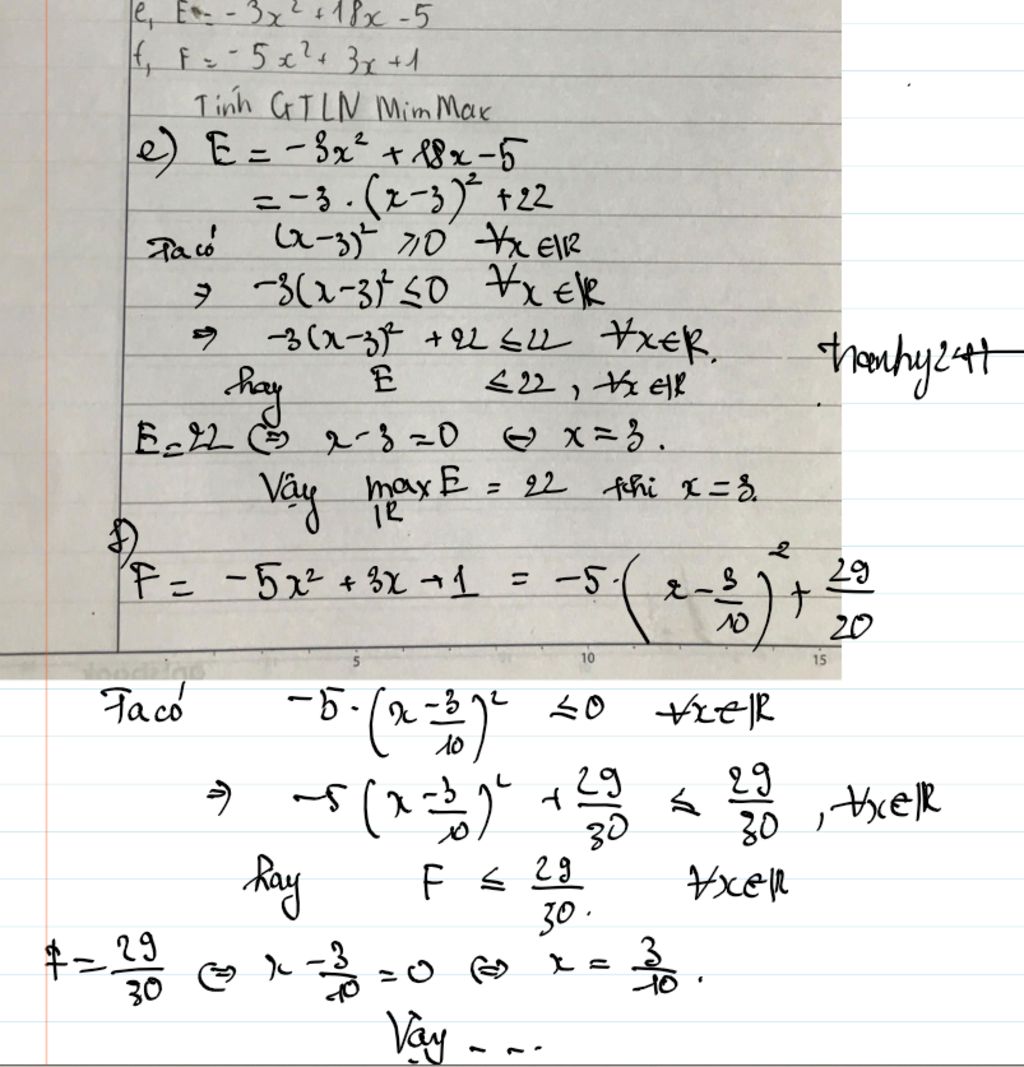 e, E = - 3x² + 18x - 5
f, F = - 5x² + 3x + 1
Tính GTLN Mim Max
e) E = -3x² + 18x - 5
= -3 . (x-3)² + 22
Ta có (x-3)² ≥ 0 ∀x ∈ ℝ
⇒ -3(x-3)² ≤ 0 ∀x ∈ ℝ
⇒ -3(x-3)² + 22 ≤ 22 ∀x ∈ ℝ.
thanhy24H
hay E ≤ 22, ∀x ∈ ℝ
E = 22 ⇔ x - 3 = 0 ⇔ x = 3.
Vậy max E = 22 khi x = 3.
ℝ
f)
F = -5x² + 3x + 1 = -5.(x - 3/10)² + 29/20
5 10 15
Ta có -5.(x - 3/10)² ≤ 0 ∀x ∈ ℝ
⇒ -5(x - 3/10)² + 29/30 ≤ 29/30, ∀x ∈ ℝ
hay F ≤ 29/30. ∀x ∈ ℝ
F = 29/30 ⇔ x - 3/10 = 0 ⇔ x = 3/10.
Vậy - - -